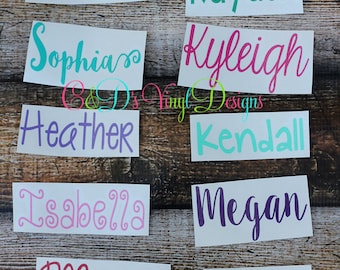 Sophia
Kyleigh
C&D's Vinyl Designs
Heather
Kendall
Isabella
Megan